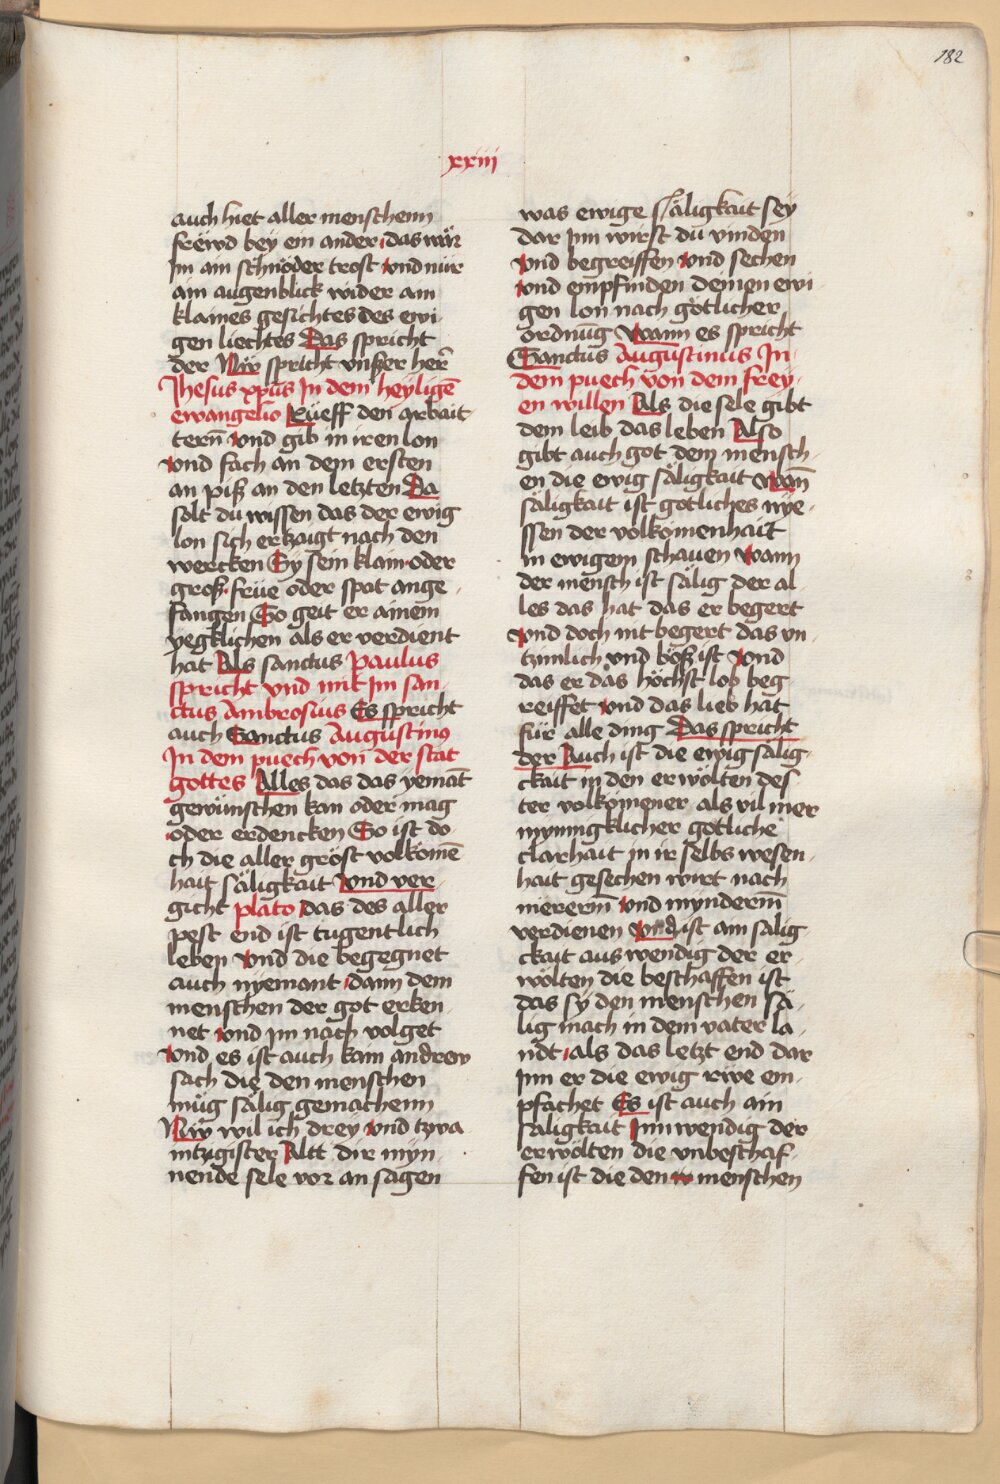 182
xxiii
auch hiet aller menschenn
frëwd bey ein ander das wär
Im ain schnöder trost vnd nür
ain augenblick wider am
klaines gesichtes des ewi
gen liechtes Das spricht
der Nw̎ spricht vnßer her̄
Jhesus xp̄us In dem heyligē
ewangelio Rüeff den arbait
tern̄ vnd gib in iren lon
vnd fach an dem ersten
an piß an den letzten Da
solt du wissen das der ewig
lon sich ertzaigt nach den
wercken Sy sein klain oder
groß früe oder spat ange
fangen So geit er ainem
yegklichen als er verdient
hat Als sanctus Paulus
spricht vnd mit Im san
ctus Ambrosius Es spricht
auch Sanctus Augustinus
In dem puech von der stat
gottes Alles das das yemāt
gewünschen kan oder mag
oder erdencken So ist do
ch die aller gröst volkomē
hait säligkait vnd ver
gicht plato das des aller
pest end ist tugentlich
leben vnd die begegnet
auch nyemant dann dem
menschen der got erken
net vnd im nach volget
vnd es ist auch kain andrew
sach die den menschen
müg sälig gemachenn
Nw̎ wil ich drey vnd tzwa
intzigister Altt dir myn
nende sele vor an sagen
was ewige säligkait sey
dar Inn wirst dü vinden
vnd begreiffen vnd sechen
vnd empfinden deinen ewi
gen lon nach götlicher
ordnūg Wann es spricht
Sanctus Augustinus In
dem puech von dem frey
en willen Als die sele gibt
dem leib das leben Also
gibt auch got dem mensch
en die ewig säligkait wan̄
säligkait ist götliches nye
ssen der volkomenhait
in ewigem schauen wann
der mensch ist sälig der al
les das hat das er begert
vnd doch nit begert das vn
tzimlich vnd böß ist vnd
das er das höchst lob beg
reiffet vnd das lieb hat
für alle ding Das spricht
der Auch ist die ewig sälig
ckait in den erwölten des
ter volkomener als vil mer
mynnigklicher götliche
clarhait in ir selbs wesen
hait gesechen wirt nach
mererm̄ vnd mynderm̄
verdienen vnd ist ain sälig
ckait auswendig der er
wölten die beschaffen ist
das sy den menschen sä
lig mach in dem vater la
ndt als das letzt end dar
Inn er die ewig rwe em
pfachet Es ist auch ain
säligkait Innwendig der
erwölten die vnbeschaf
fen ist die den menschen